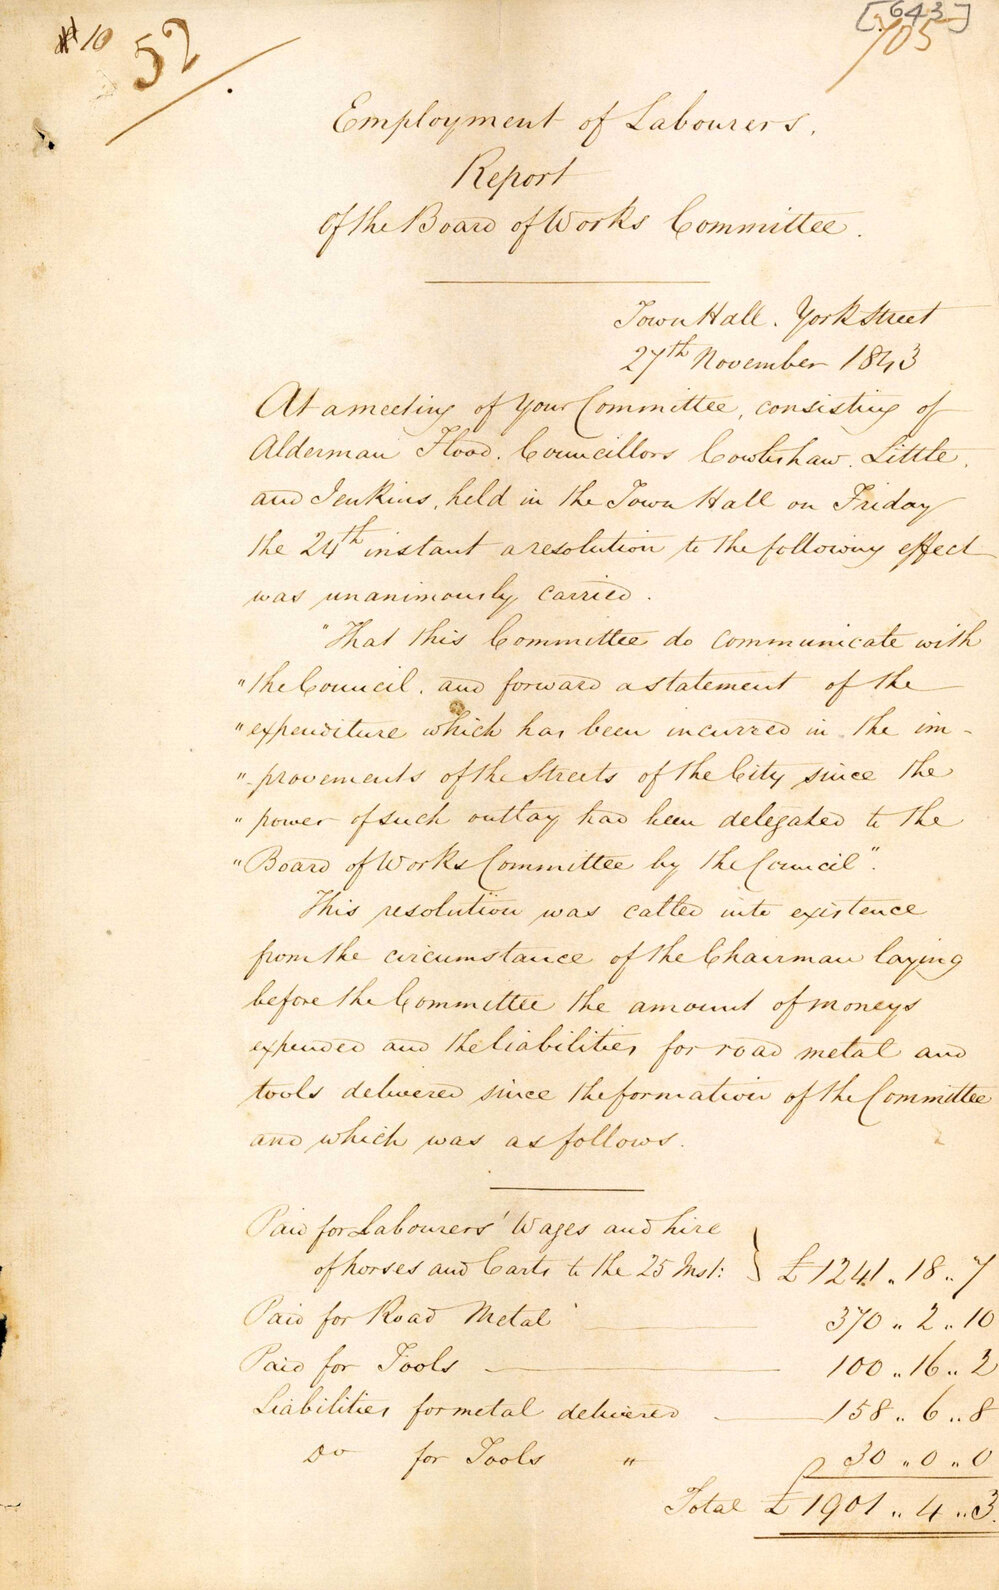 # 10
52
[643]
705
Employment of Labourers.
Report
Of the Board of Works Committee.
Town Hall. York Street
27th November 1843
At a meeting of Your Committee, consisting of
Alderman Flood. Councillors Cowlishaw. Little.
and Jenkins, held in the Town Hall on Friday
the 24th instant a resolution to the following effect
was unanimously carried.
"That this Committee do communicate with
" the Council. and forward a statement of the
" expenditure which has been incurred in the im-
" provements of the Streets of the City since the
" power of such outlay had been delegated to the
" Board of Works Committee by the Council".
This resolution was called into existence
from the circumstance of the Chairman laying
before the Committee the amount of moneys
expended and the liabilities for road metal and
tools delivered since the formation of the Committee
and which was as follows.
Paid for Labourers' Wages and hire
of horses and Carts to the 25 Inst: } £1241 ,, 18 ,, 7
Paid for Road Metal 370 ,, 2 ,, 10
Paid for Tools 100 ,, 16 ,, 2
Liabilities for metal delivered 158 ,, 6 ,, 8
Do for Tools " 30 ,, 0 ,, 0
Total £1901 ,, 4 ,, 3.